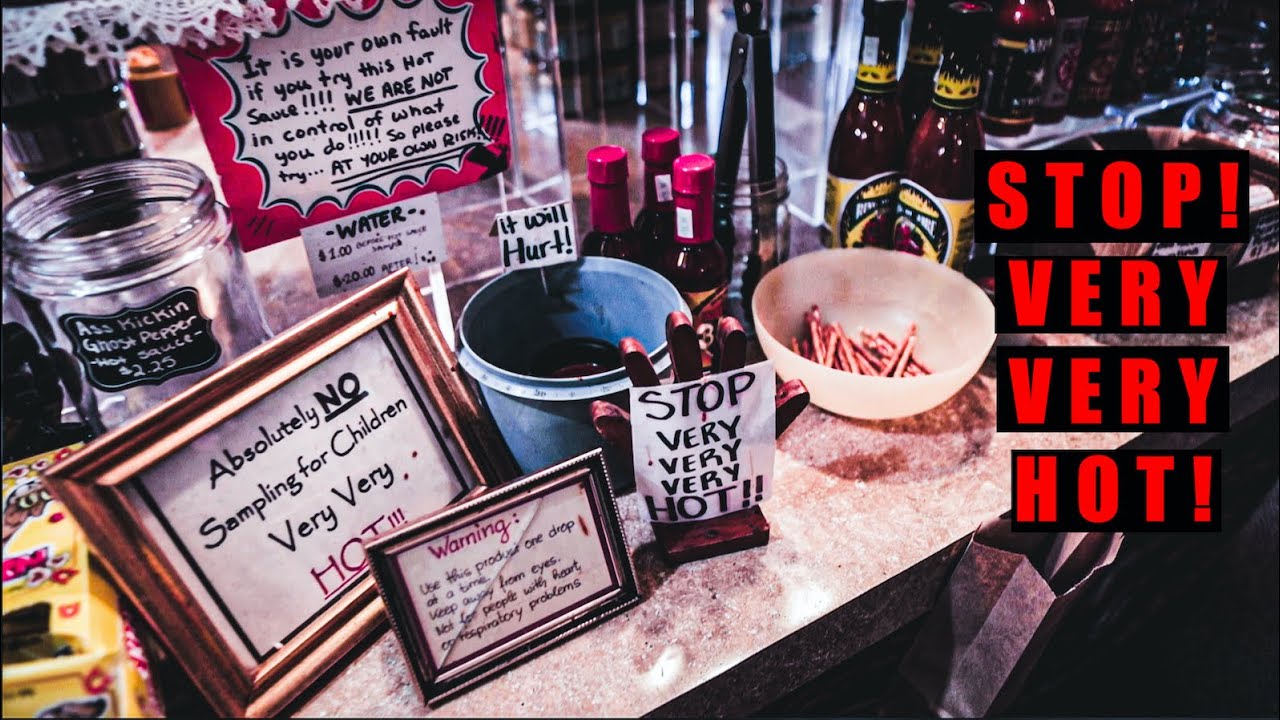 It is your own fault
if you try this Hot
Sauce!!!! WE ARE NOT
in control of what
you do!!!!! So please
try... AT YOUR OWN RISK!!!
-WATER-
$1.00 BEFORE HOT SAUCE
Sample
$20.00 AFTER!
it will
Hurt!
Ass Kickin
Ghost Pepper
Hot Sauce
$2.25
Absolutely NO
Sampling for Children
Very Very
HOT!!!
Warning:
Use this product one drop
at a time.
Keep away from eyes.
Not for people with heart,
or respiratory problems
STOP
VERY
VERY
VERY
HOT!!
STOP!
VERY
VERY
HOT!